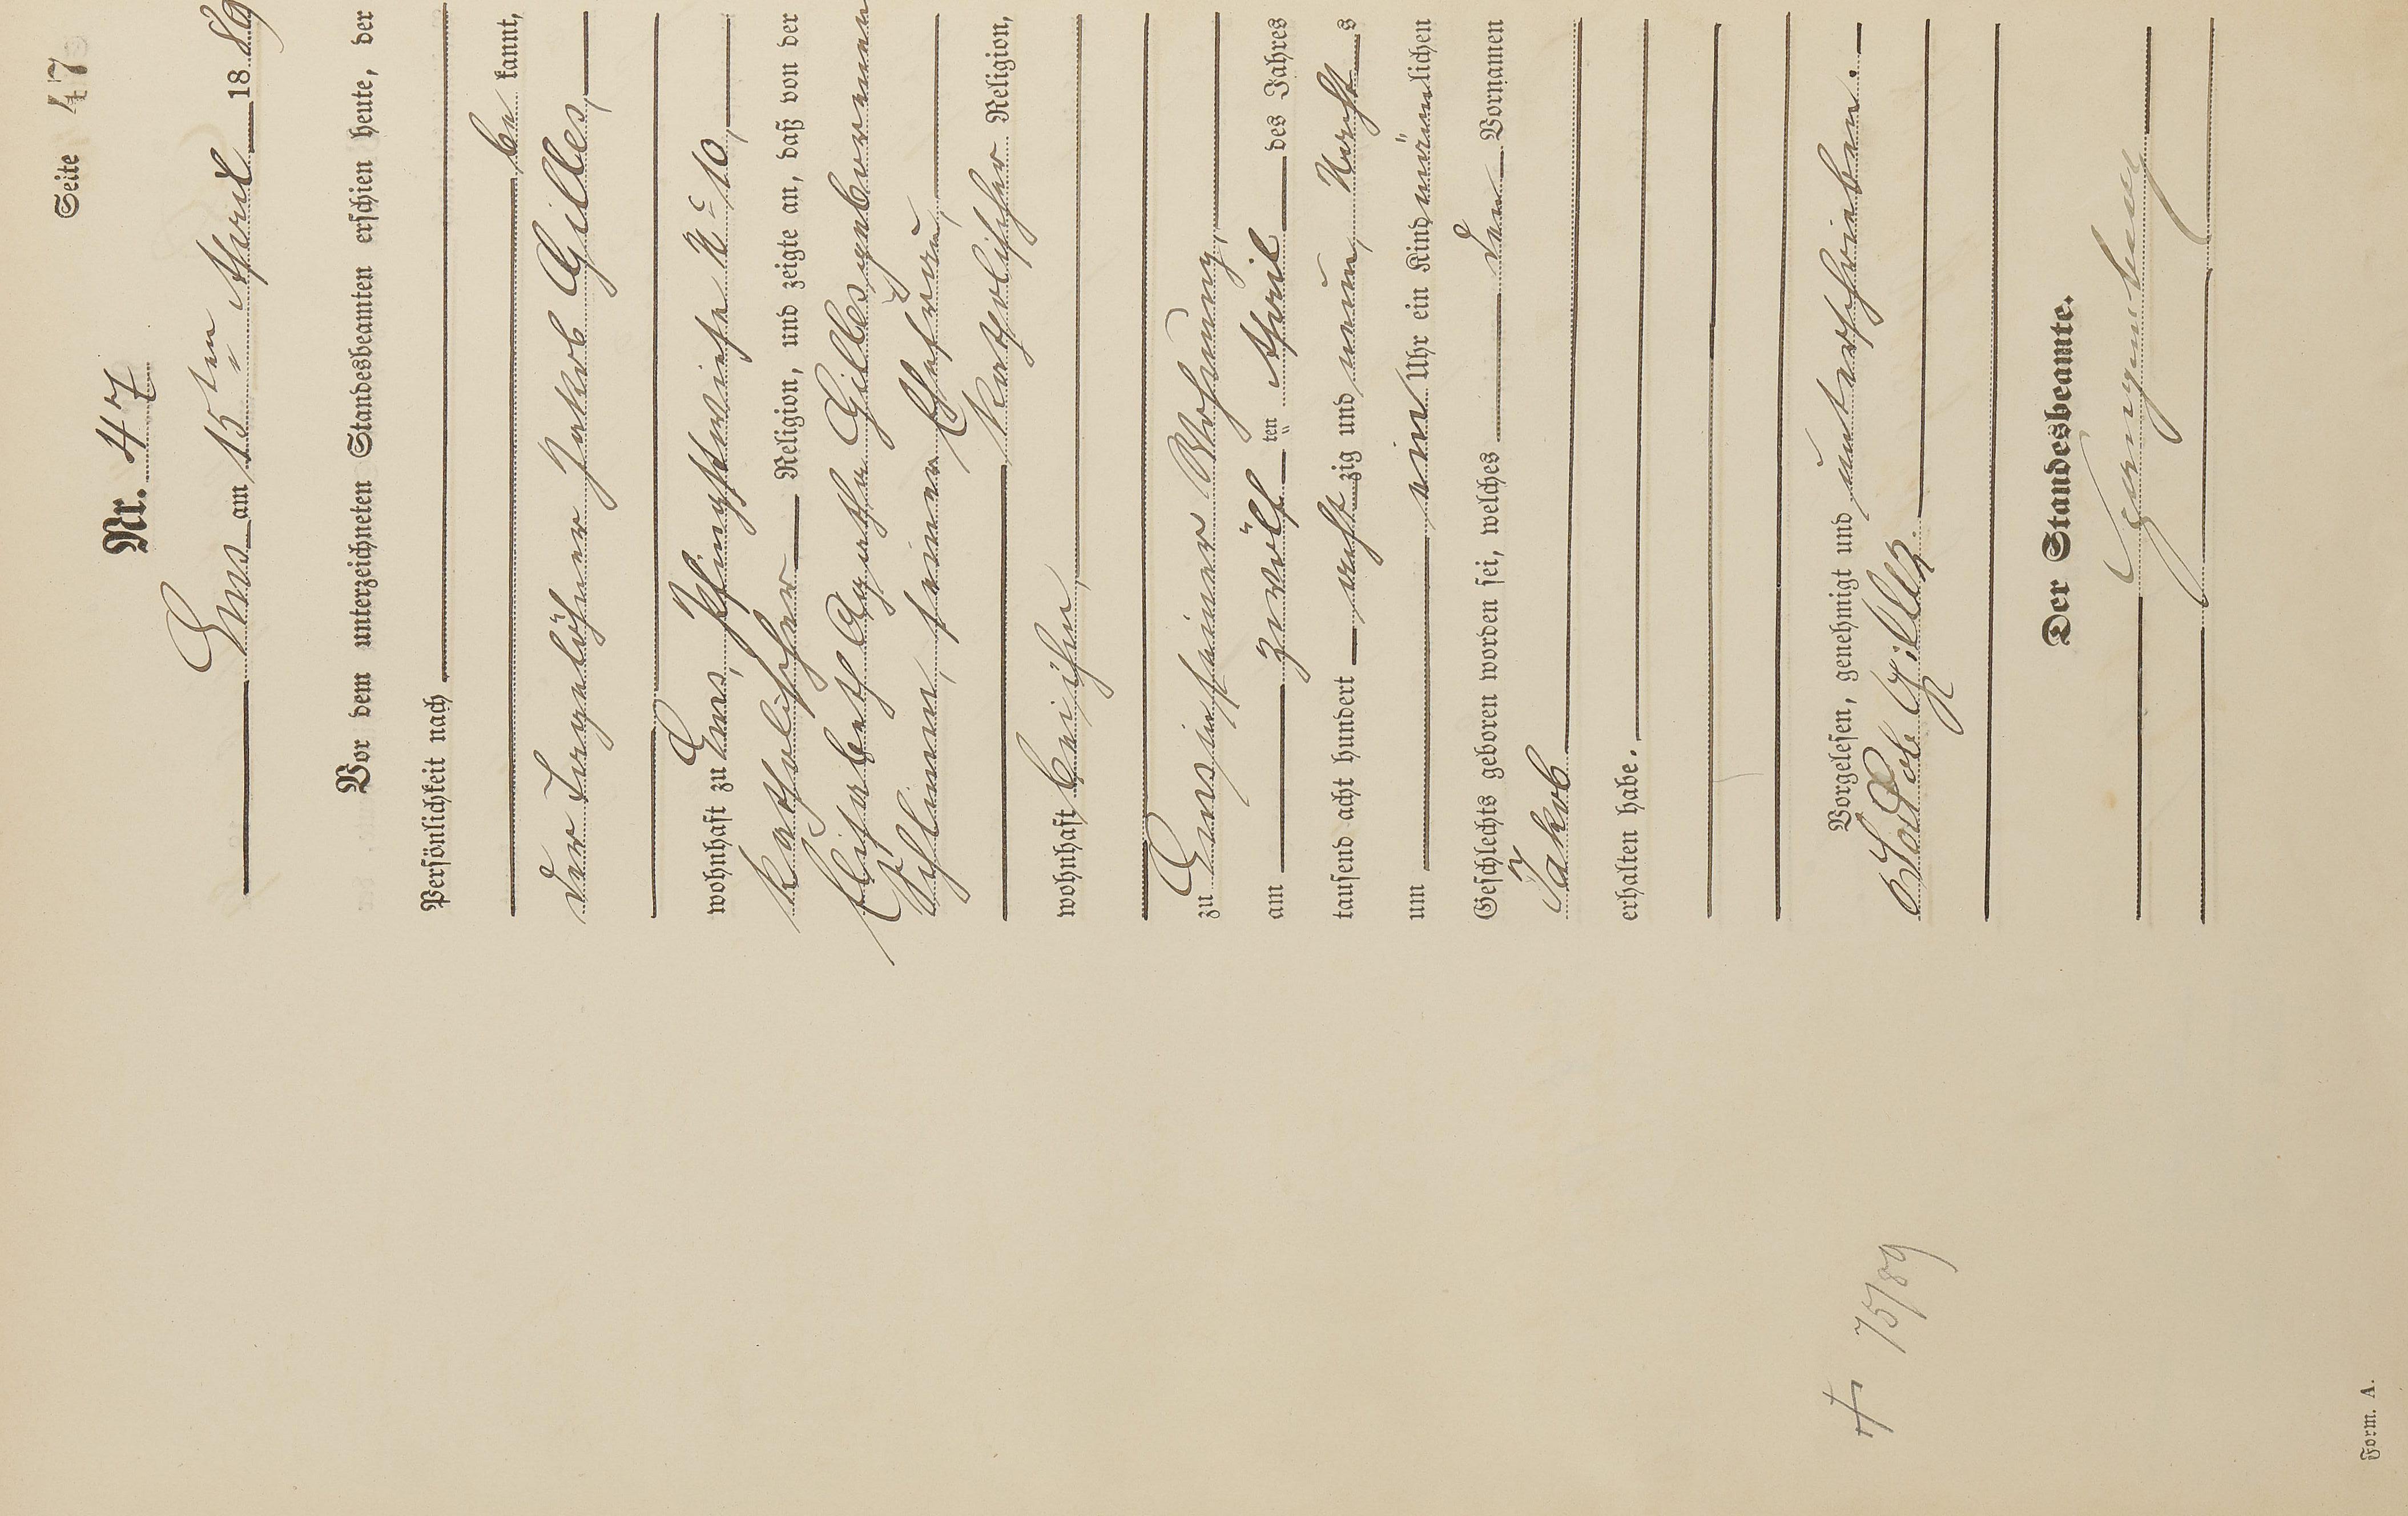 Seite 47
Nr. 47
Ems am 15ten April 1889
Vor dem unterzeichneten Standesbeamten erschien heute, der
Persönlichkeit nach
be kannt,
der Tagelöhner Jakob Gilles,
wohnhaft zu Ems, Pfingstwiese No 10,
katholischer Religion, und zeigte an, daß von der
Elisabeth Agathe Gilles gebornen
seiner Ehefrau,
katholischer Religion,
wohnhaft bei ihm,
zu Ems in seiner Wohnung,
am zwölf ten April des Jahres
tausend acht hundert acht zig und neun, Nacht s
um ein Uhr ein Kind männ lichen
Geschlechts geboren worden sei, welches den Vornamen
Jakob
erhalten habe.
Vorgelesen, genehmigt und unterschrieben.
Jakob Gilles
Der Standesbeamte.
† 75/89
Form. A.